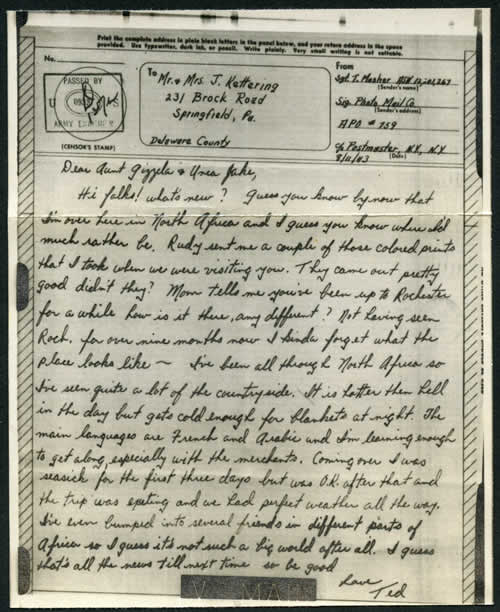 Print the complete address in plain block letters in the panel below, and your return address in the space
provided. Use typewriter, dark ink, or pencil. Write plainly. Very small writing is not suitable.
No.
PASSED BY
U S
ARMY
(CENSOR'S STAMP)
To
Mr. & Mrs. J. Kettering
231 Brock Road
Springfield, Pa.
Delaware County
From
Sgt T. Mosher ASN
(Sender's name)
Sig. Photo Mail Co.
(Sender's address)
APO # 759
c/o Postmaster, N.Y., N.Y
8/11/43 (Date)
Dear Aunt Gizzela & Unca Jake,
Hi folks! what's new? Guess you know by now that
I'm over here in North Africa and I guess you know where I'd
much rather be. Rudy sent me a couple of those colored prints
that I took when we were visiting you. They came out pretty
good didn't they? Mom tells me you've been up to Rochester
for a while how is it there, any different? Not having seen
Roch. for over nine months now I kinda forget what the
place looks like ~ I've been all through North Africa so
I've seen quite a lot of the countryside. It is hotter then hell
in the day but gets cold enough for blankets at night. The
main languages are French and Arabic and I'm learning enough
to get along, especially with the merchants. Coming over I was
seasick for the first three days but was O.K. after that and
the trip was exciting and we had perfect weather all the way.
I've even bumped into several friends in different parts of
Africa so I guess it's not such a big world after all. I guess
that's all the news till next time so be good
Love
Ted
V - MAIL